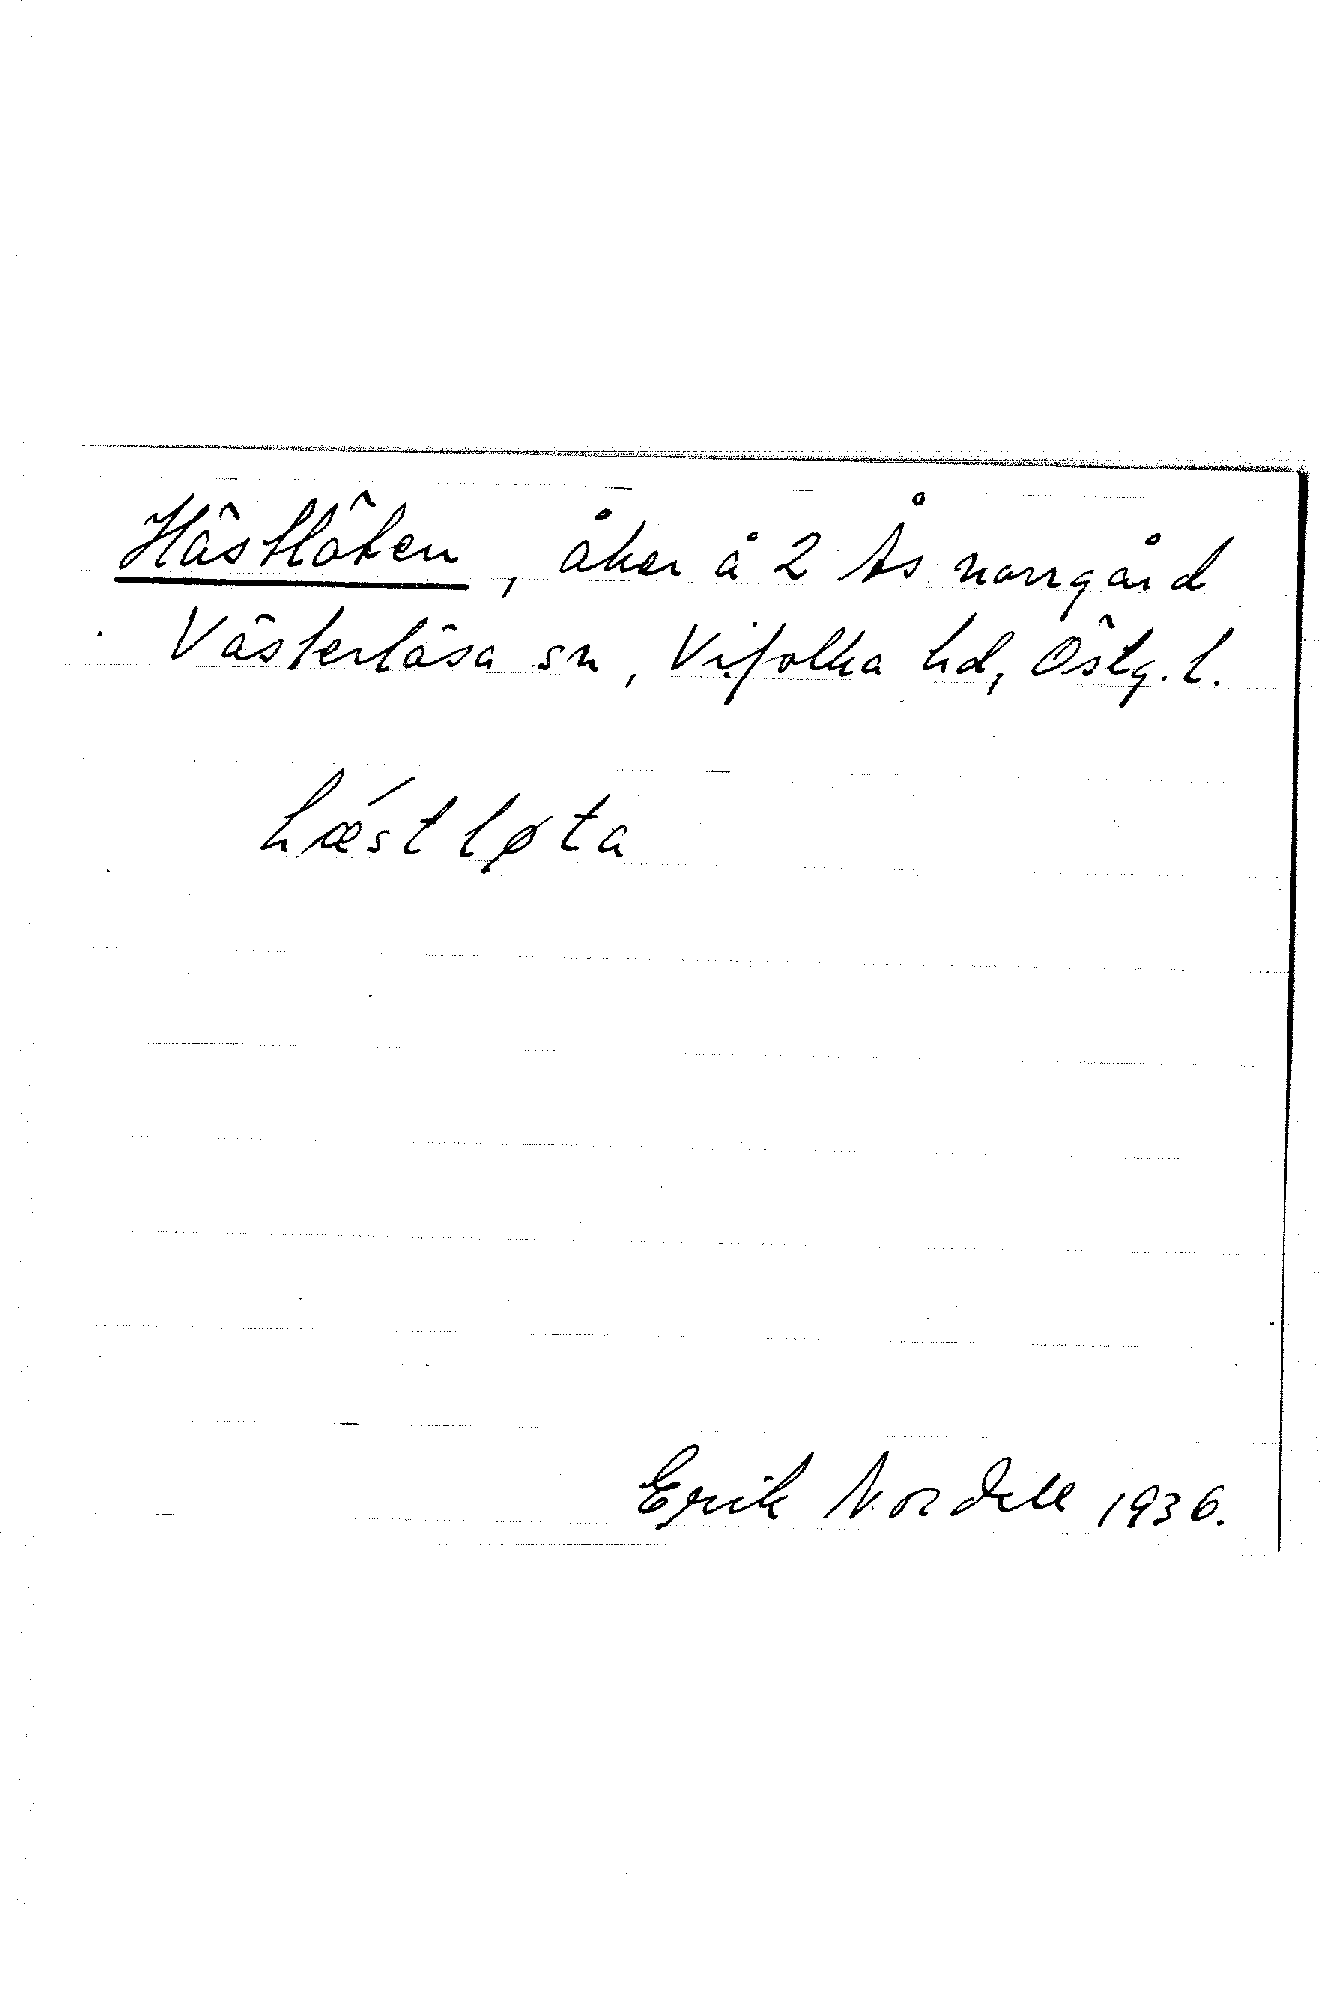 Hästlöten, åker å 2 Ås norrgård
Västerlösa sn, Vifolka hd, Östg. l.
hǽstløta
Erik Nordell 1936.